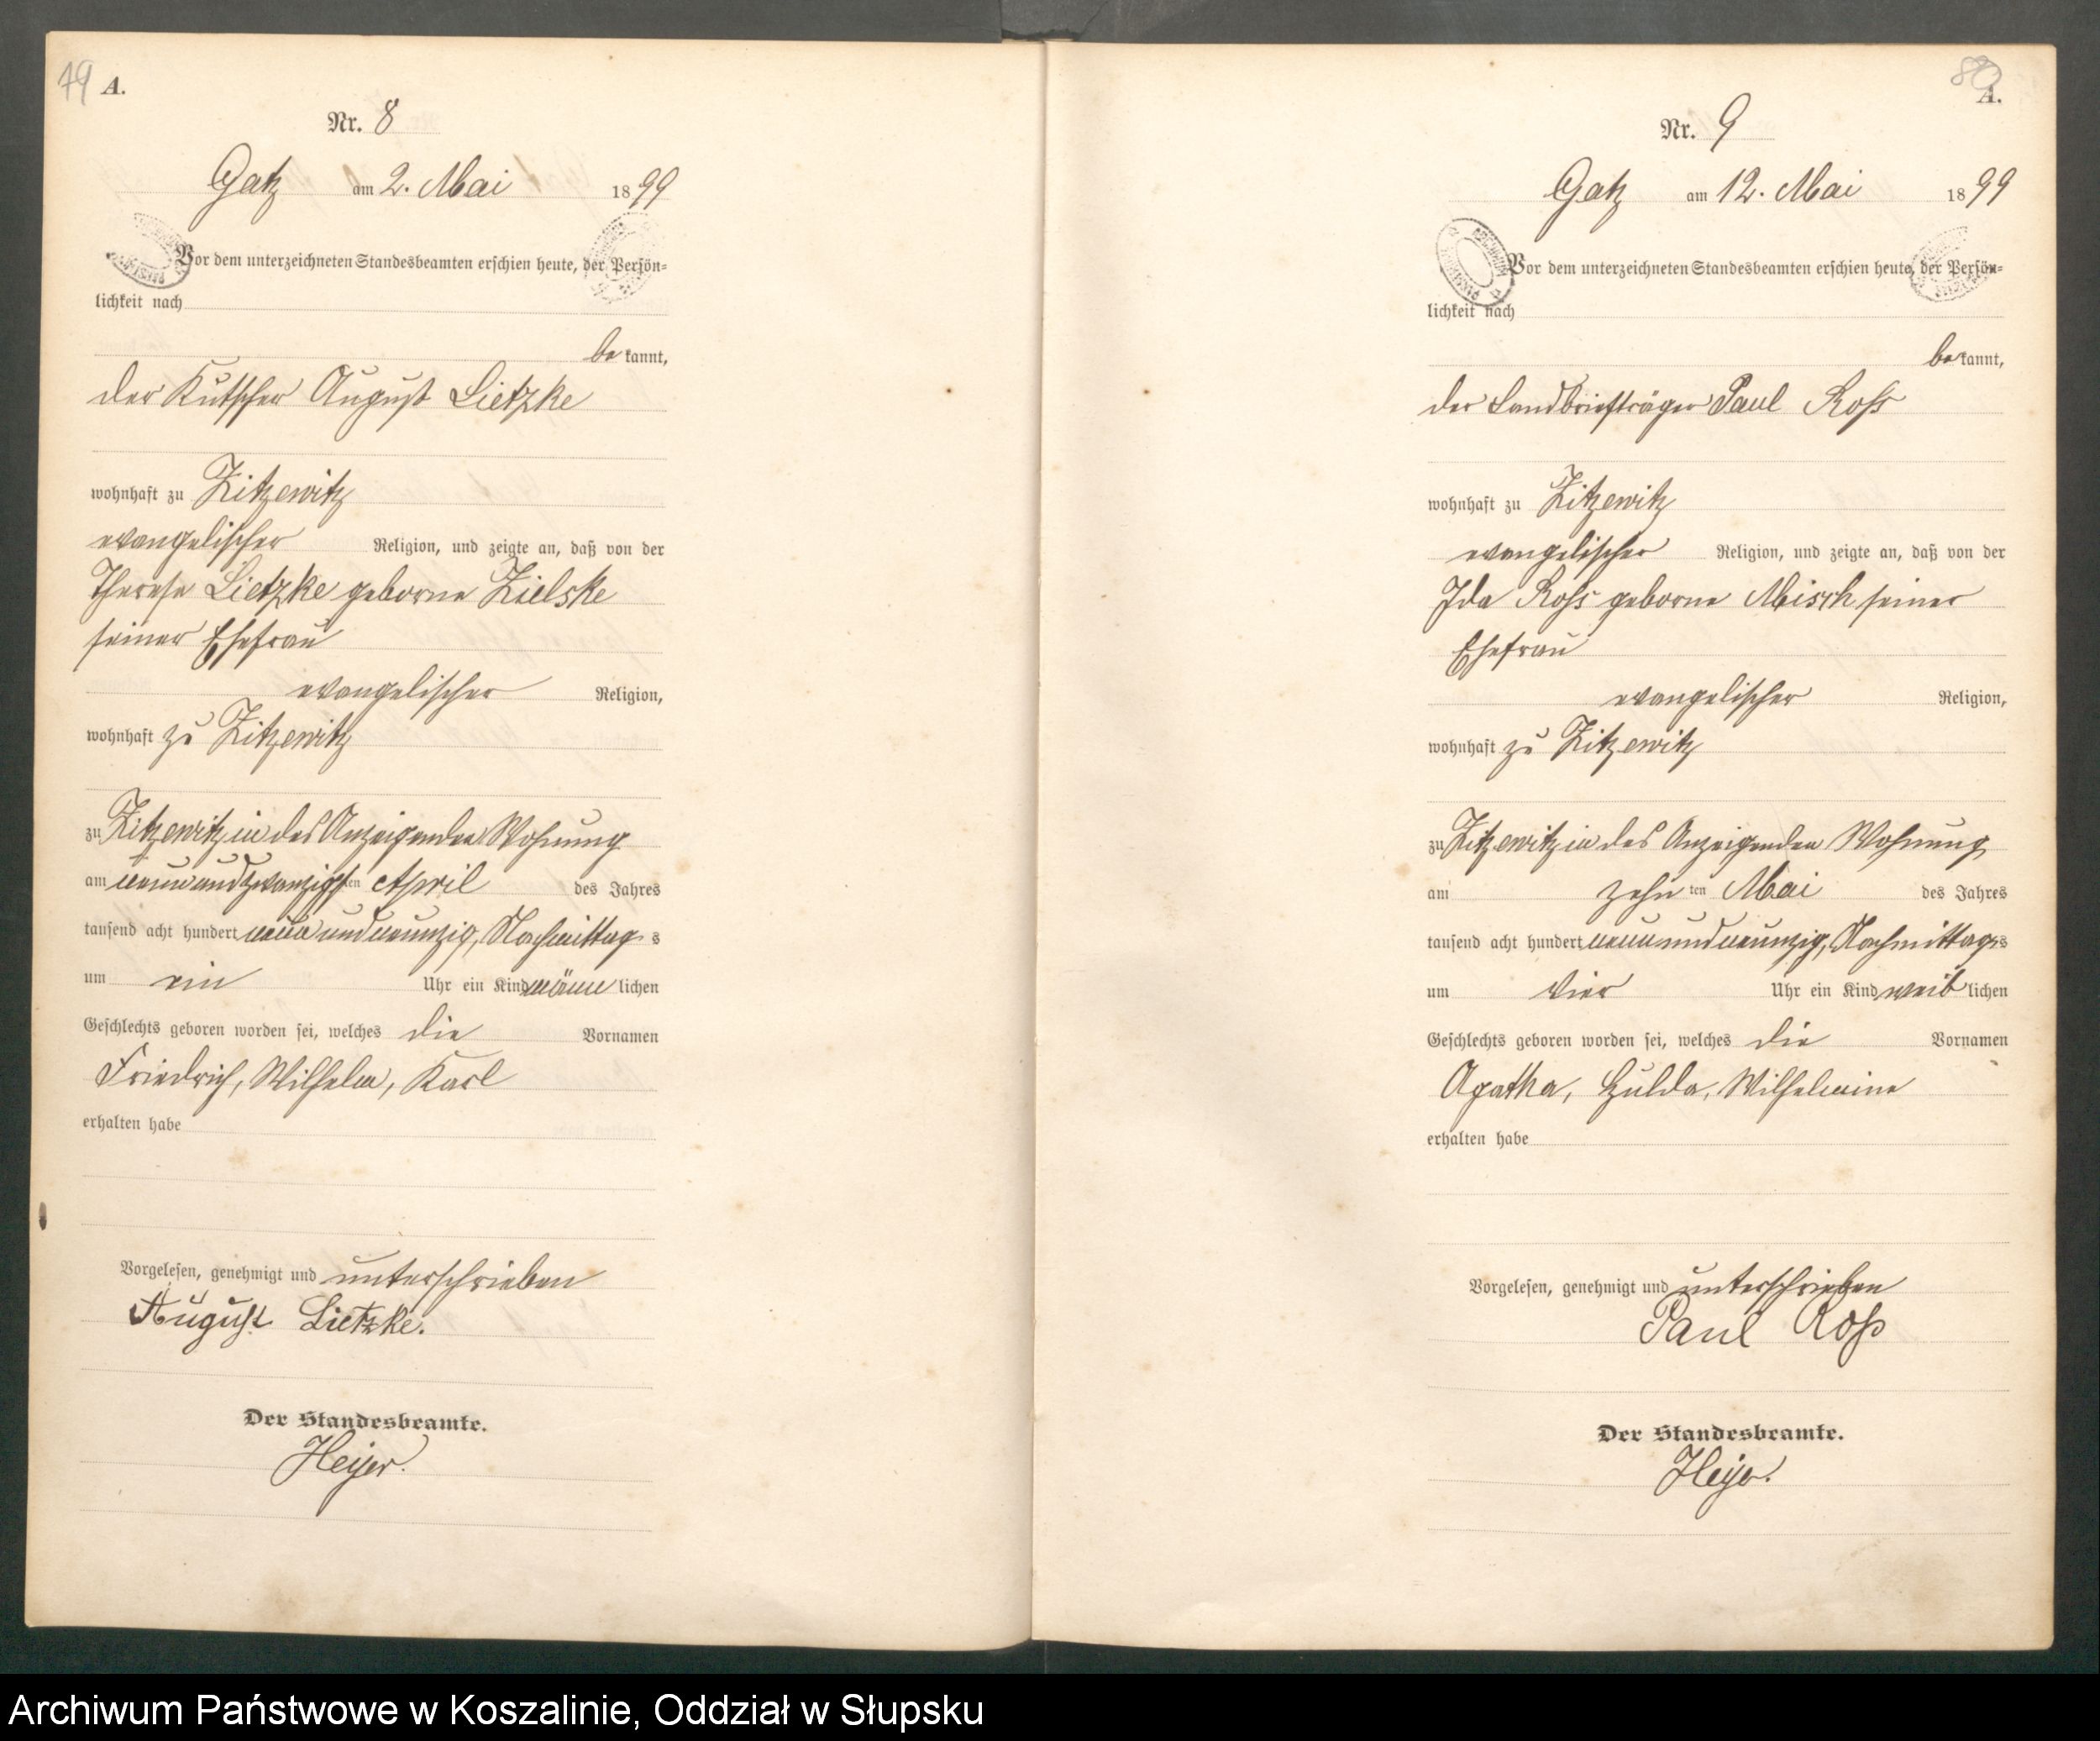 79 A.
Nr. 8
Gatz am 2. Mai 1899
Vor dem unterzeichneten Standesbeamten erschien heute, der Persön=
lichkeit nach
be kannt,
der Kutscher August Lietzke
wohnhaft zu Zitzewitz
evangelischer Religion, und zeigte an, daß von der
Therese Lietzke geborne Zielske
seiner Ehefrau
evangelischer Religion,
wohnhaft zu Zitzewitz
zu Zitzewitz in des Anzeigenden Wohnung
am neunundzwanzigsten April des Jahres
tausend acht hundert neunundneunzig, Nachmittags
um ein Uhr ein Kind männlichen
Geschlechts geboren worden sei, welches die Vornamen
Friedrich, Wilhelm, Karl
erhalten habe
Vorgelesen, genehmigt und unterschrieben
August Lietzke.
Der Standesbeamte.
Heyer.
80
A.
Nr. 9
Gatz am 12. Mai 1899
Vor dem unterzeichneten Standesbeamten erschien heute, der Persön=
lichkeit nach
be kannt,
der Landbriefträger Paul Roß
wohnhaft zu Zitzewitz
evangelischer Religion, und zeigte an, daß von der
Ida Roß geborne Misch seiner
Ehefrau
evangelischer Religion,
wohnhaft zu Zitzewitz
zu Zitzewitz in des Anzeigenden Wohnung
am zehnten Mai des Jahres
tausend acht hundert neunundneunzig, Nachmittags
um vier Uhr ein Kind weiblichen
Geschlechts geboren worden sei, welches die Vornamen
Agatha, Hulda, Wilhelmine
erhalten habe
Vorgelesen, genehmigt und unterschrieben
Paul Roß
Der Standesbeamte.
Heyer.
Archiwum Państwowe w Koszalinie, Oddział w Słupsku